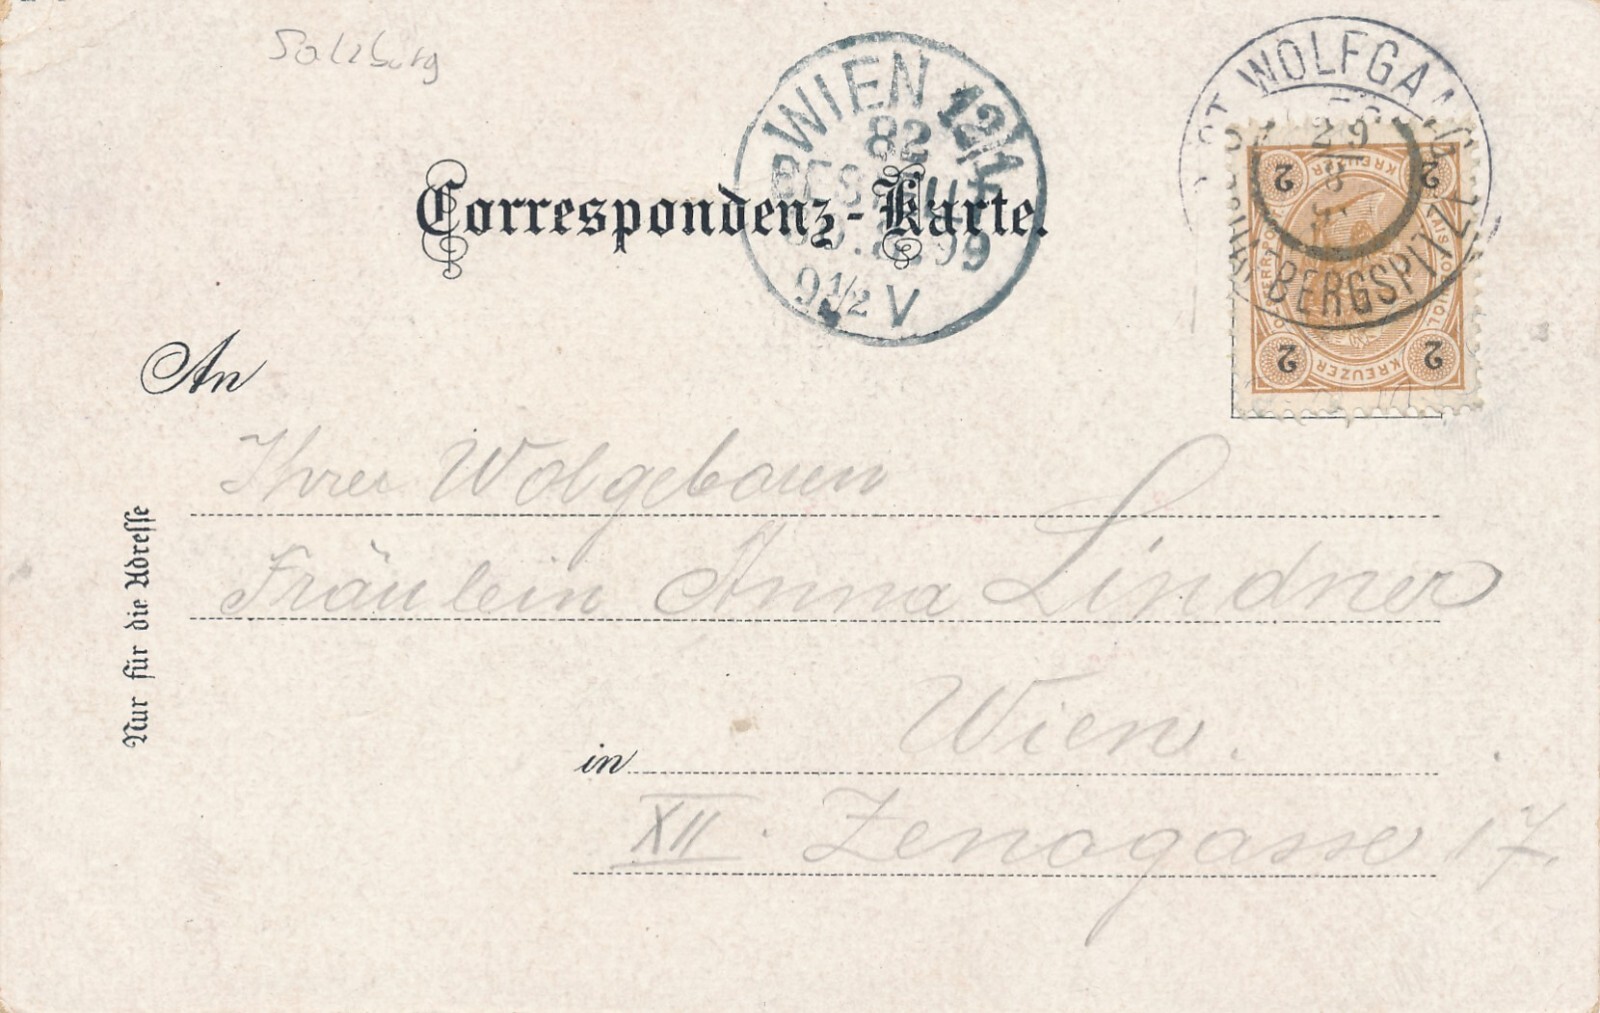 Salzburg
WIEN 12/1
82
BESTELLT
99
9½V
ST WOLFGANG
29
8
BERGSPITZE
Correspondenz-Karte.
2 KREUZER 2
2 KREUZER 2
An
Ihrer Wolgeboren
Fräulein Anna Lindner
Wien.
in
XII. Zenogasse 17.
Nur für die Adresse